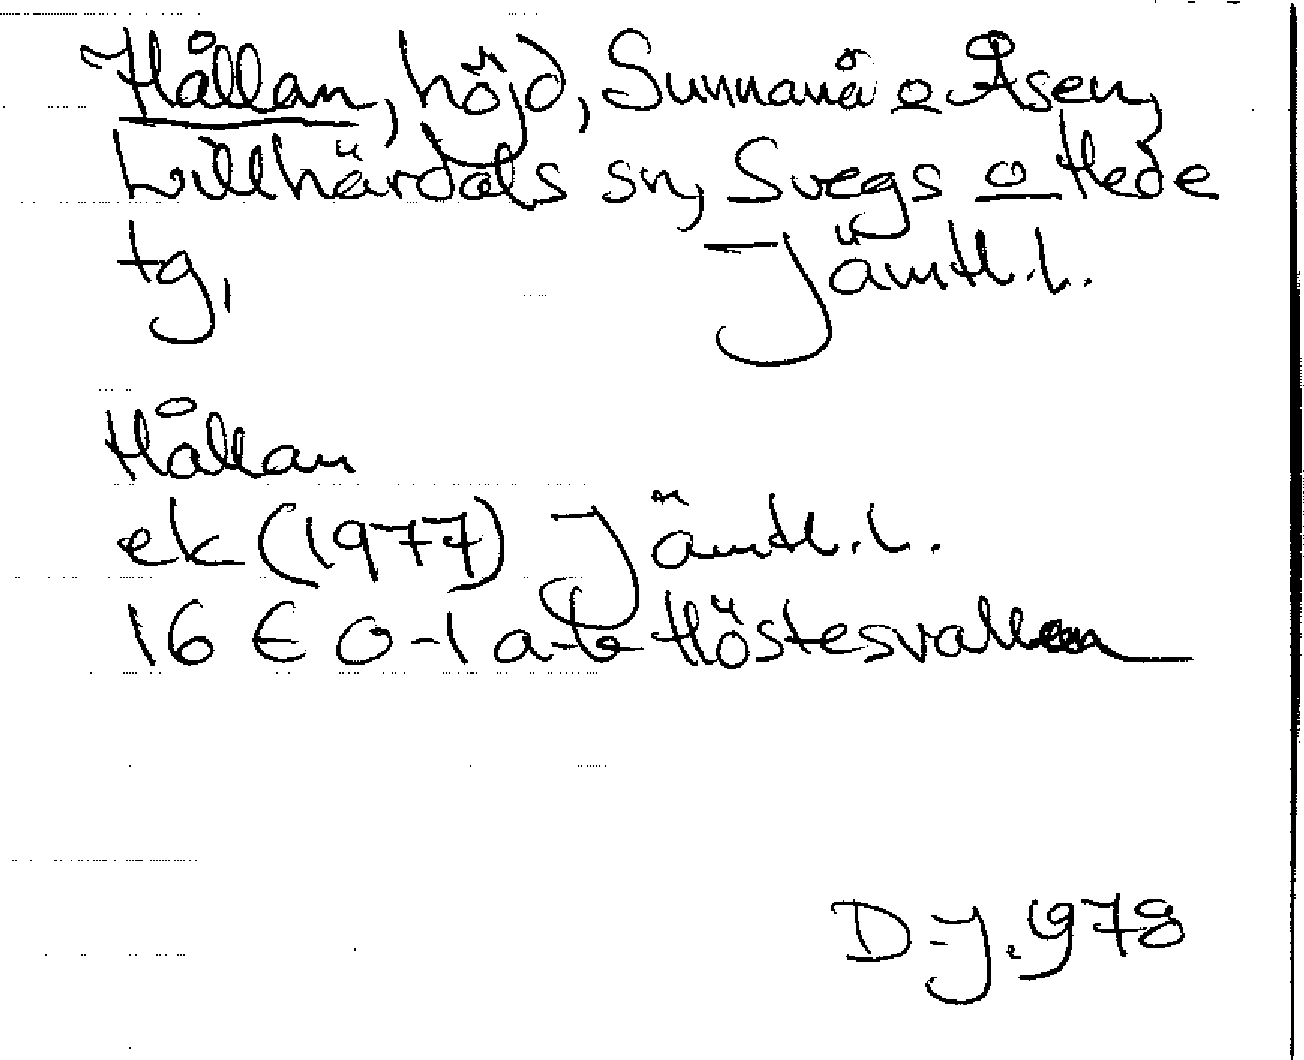 Hållan, höjd, Sunnanå o Åsen,
Lillhärdals sn, Svegs o Hede
tg, Jämtl.l.
Hållan
ek (1977) Jämtl.l.
16 E 0-1 a-b Höstesvallen
D-J. 1978